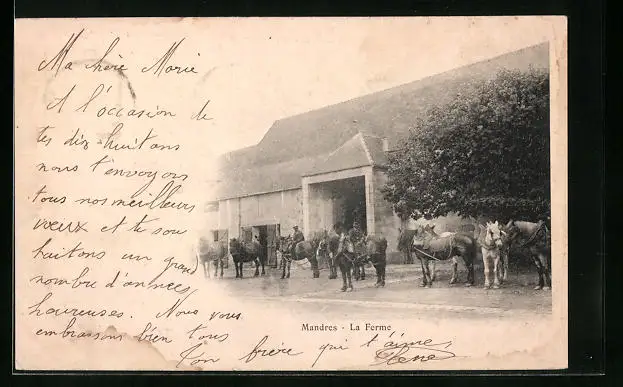 Ma chère Marie
A l'occasion de
tes dix-huit ans
nous t'envoyons
tous nos meilleurs
vœux et te sou
haitons un grand
nombre d'années
heureuses. Nous vous
embrassons bien tous
Ton frère qui t'aime
René
Mandres - La Ferme